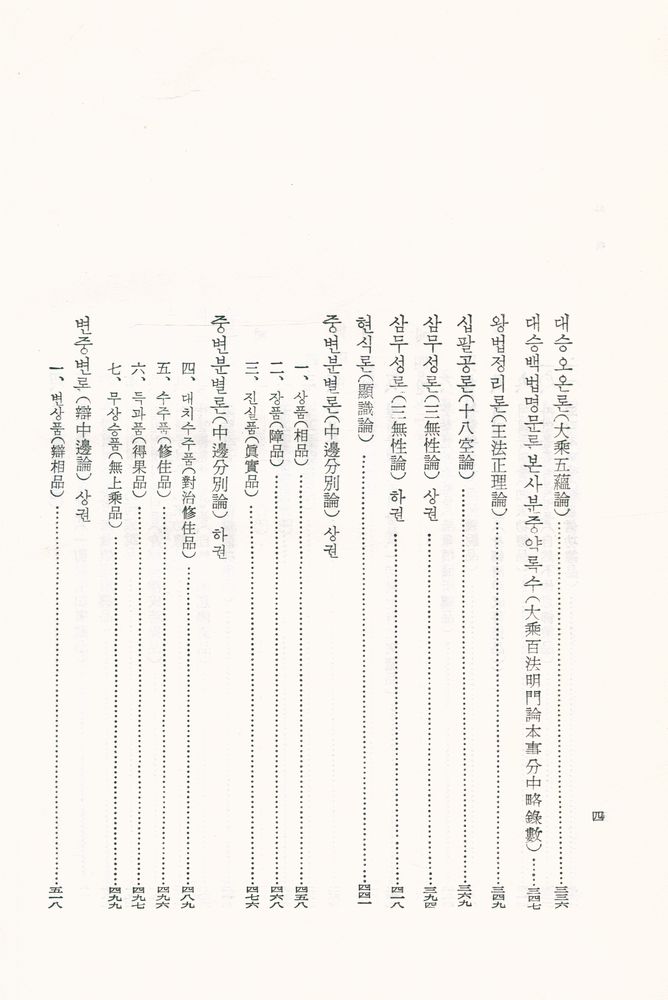 四
대승오온론(大乘五蘊論)……三三六
대승백법명문론본사분중약록수(大乘百法明門論本事分中略錄數)……三四七
왕법정리론(王法正理論)……三四九
십팔공론(十八空論)……三六九
삼무성론(三無性論) 상권……三九四
삼무성론(三無性論) 하권……四一八
현식론(顯識論)……四四一
중변분별론(中邊分別論) 상권
一、상품(相品)……四五八
二、장품(障品)……四六八
三、진실품(眞實品)……四七六
중변분별론(中邊分別論) 하권
四、대치수주품(對治修住品)……四八九
五、수주품(修住品)……四九六
六、득과품(得果品)……四九七
七、무상승품(無上乘品)……四九九
변중변론(辯中邊論) 상권
一、변상품(辯相品)……五一八